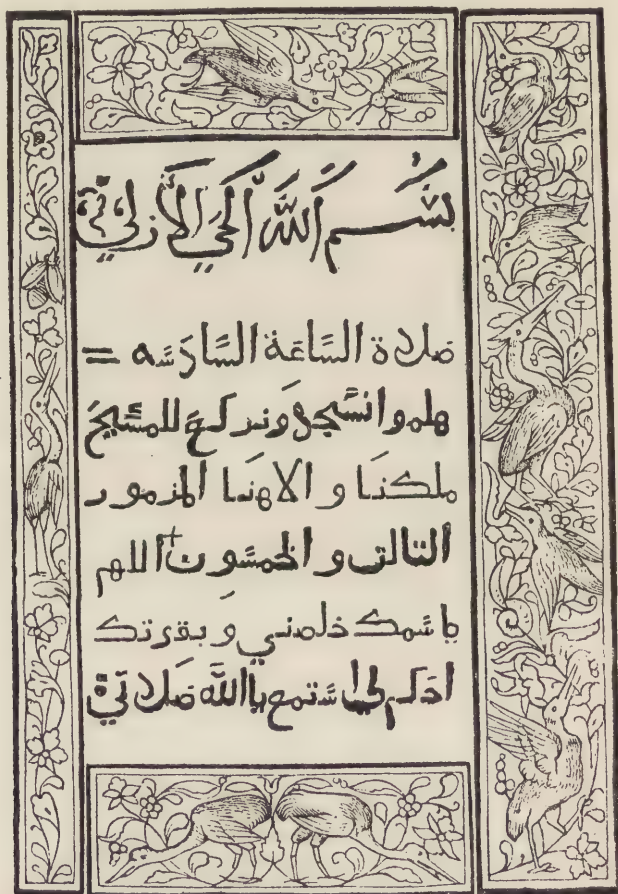 بسم الله الحي الازلي
صلاة الساعة السادسه =
هلموا نسجد ونركع للمسيح
ملكنا والاهنا المزمور
التالت والخمسون + اللهم
باسمك خلصني وبقوتك
احكم لي استمع ياالله صلاتي